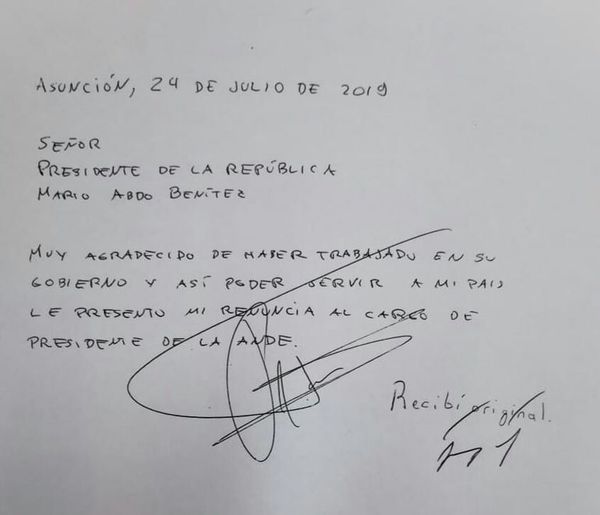 ASUNCIÓN, 24 DE JULIO DE 2019
SEÑOR
PRESIDENTE DE LA REPÚBLICA
MARIO ABDO BENÍTEZ
MUY AGRADECIDO DE HABER TRABAJADO EN SU
GOBIERNO Y ASÍ PODER SERVIR A MI PAIS
LE PRESENTO MI RENUNCIA AL CARGO DE
PRESIDENTE DE LA ANDE.
Recibí original.